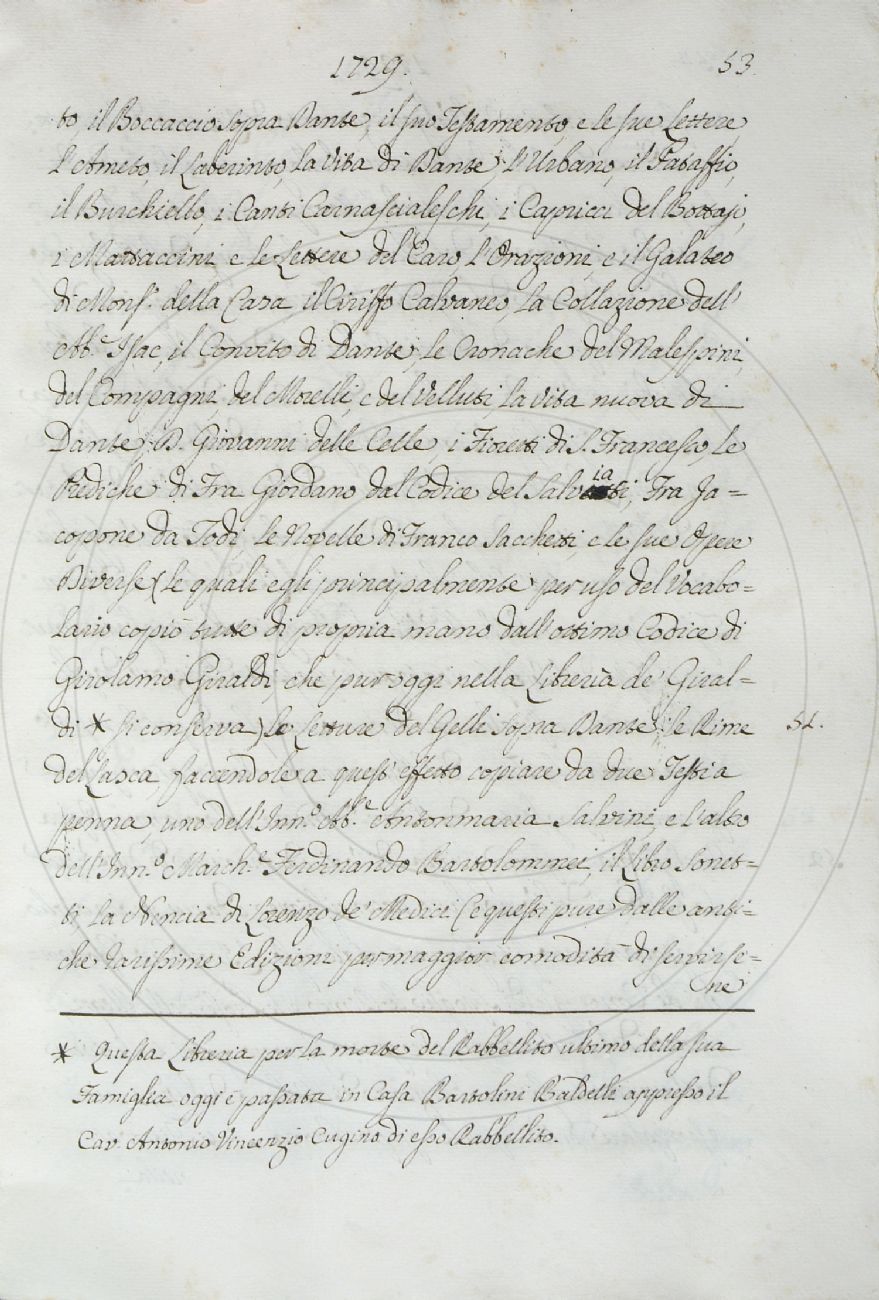 1729. 53
to, il Boccaccio sopra Dante, il suo Testamento, e le sue Lettere
l'Ameto, il Laberinto, la Vita di Dante, l'Urbano, il Pataffio,
il Burchiello, i Canti Carnascialeschi, i Capricci del Bottajo,
i Mattaccini e le Lettere del Caro, l'Orazioni, e il Galateo
di Mons.r della Casa, il Ciriffo Calvaneo, la Collazione dell'
Ab.e Isac, il Convito di Dante, le Cronache del Malespini
del Compagni, del Morelli, e del Velluti, la Vita nuova di
Dante, D. Giovanni delle Celle, i Fioretti di S. Francesco, le
Prediche di Fra Giordano dal Codice del Salviati, Fra Ja=
copone da Todi, le Novelle di Franco Sacchetti e le sue Opere
Diverse (le quali egli principalmente per uso del Vocabo=
lario copiò tutte di propria mano dall'ottimo Codice di
Girolamo Giraldi, che pur oggi nella Libreria de' Giral=
di * si conserva) le Letture del Gelli sopra Dante, le Rime 54.
del Lasca, facendole a quest'effetto copiare da due Testi a
penna, uno dell'Inn.o Ab.e Antonmaria Salvini, e l'altro
dell'Inn.o March.e Ferdinando Bartolommei, il Libro Sonet=
ti la Nencia di Lorenzo de' Medici (e questi pure dalle anti=
che rarissime Edizioni per maggior comodità di servirse=
ne
* Questa Libreria per la morte del Rabbellito ultimo della sua
Famiglia oggi è passata in Casa Bartolini Baldelli appresso il
Cav. Antonio Vincenzio Cugino di esso Rabbellito.